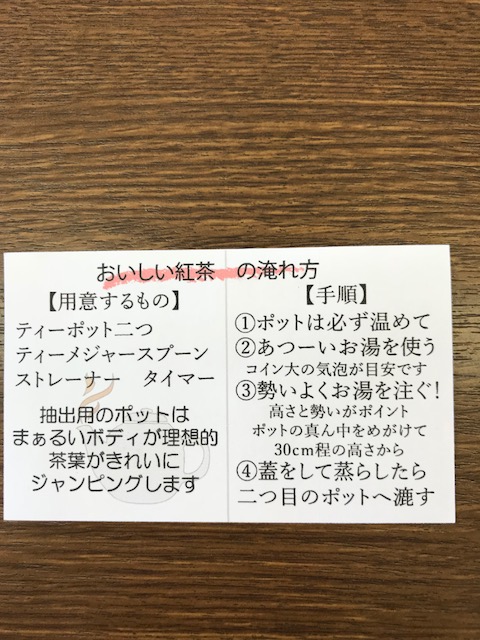 おいしい紅茶　の淹れ方
【用意するもの】
ティーポット二つ
ティーメジャースプーン
ストレーナー　タイマー
抽出用のポットは
まぁるいボディが理想的
茶葉がきれいに
ジャンピングします
【手順】
①ポットは必ず温めて
②あつーいお湯を使う
コイン大の気泡が目安です
③勢いよくお湯を注ぐ!
高さと勢いがポイント
ポットの真ん中をめがけて
30cm程の高さから
④蓋をして蒸らしたら
二つ目のポットへ漉す